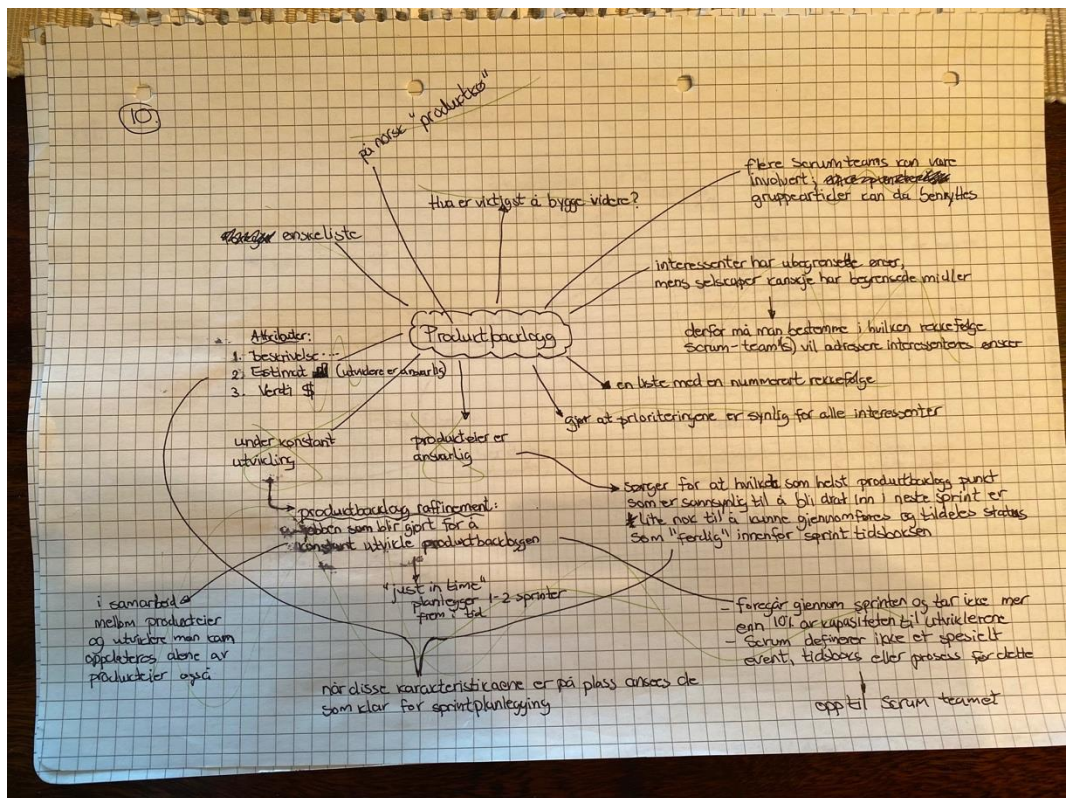 10.
på norsk "productkø"
Hva er viktigst å bygge videre?
flere scrumteams kan være
involvert;
gruppearticler can da benyttes
ønskeliste
interessenter har ubegrensede ønsker,
mens selskaper kanskje har begrensede midler
derfor må man bestemme i hvilken rekkefølge
Scrum-team(s) vil adressere interessenteres ønsker
Productbacklogg
Attributer:
1. beskrivelse
2. Estimat (utviklere er ansvarlig)
3. Verdi $
en liste med en nummerert rekkefølge
gjør at prioriteringene er synlig for alle interessenter
under konstant
utvikling
produkteier er
ansvarlig
sørger for at hvilken som helst productbacklog punkt
som er sannsynlig til å bli dratt inn i neste sprint er
lite nok til å kunne gjennomføres og tildeles status
som "ferdig" innenfor sprint tidsboksen
productbacklog raffinement:
jobben som blir gjort for å
konstant utvikle productbackloggen
"just in time"
planlegger 1-2 sprinter
frem i tid
i samarbeid
mellom produkteier
og utviklere man kan
oppdateres alene av
produkteier også
- foregår gjennom sprinten og tar ikke mer
enn 10% av kapasiteten til utviklerene
- Scrum definerer ikke et spesielt
event, tidsbocs eller prosess for dette
opp til Scrum teamet
når disse karakteristicaene er på plass anses de
som klar for sprintplanlegging